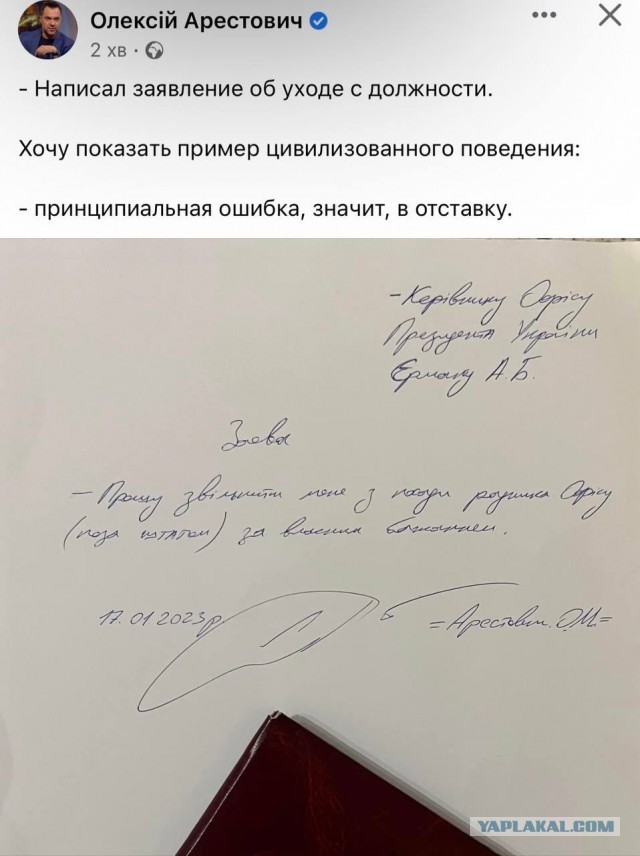 Олексій Арестович
2 хв
- Написал заявление об уходе с должности.
Хочу показать пример цивилизованного поведения:
- принципиальная ошибка, значит, в отставку.
- Керівнику Офісу
Президента України
Єрмаку А.Б.
Заява
- Прошу звільнити мене з посади радника Офісу
(поза штатом) за власним бажанням.
17.01.2023 р.
=Арестович О.М.=
YAPLAKAL.COM